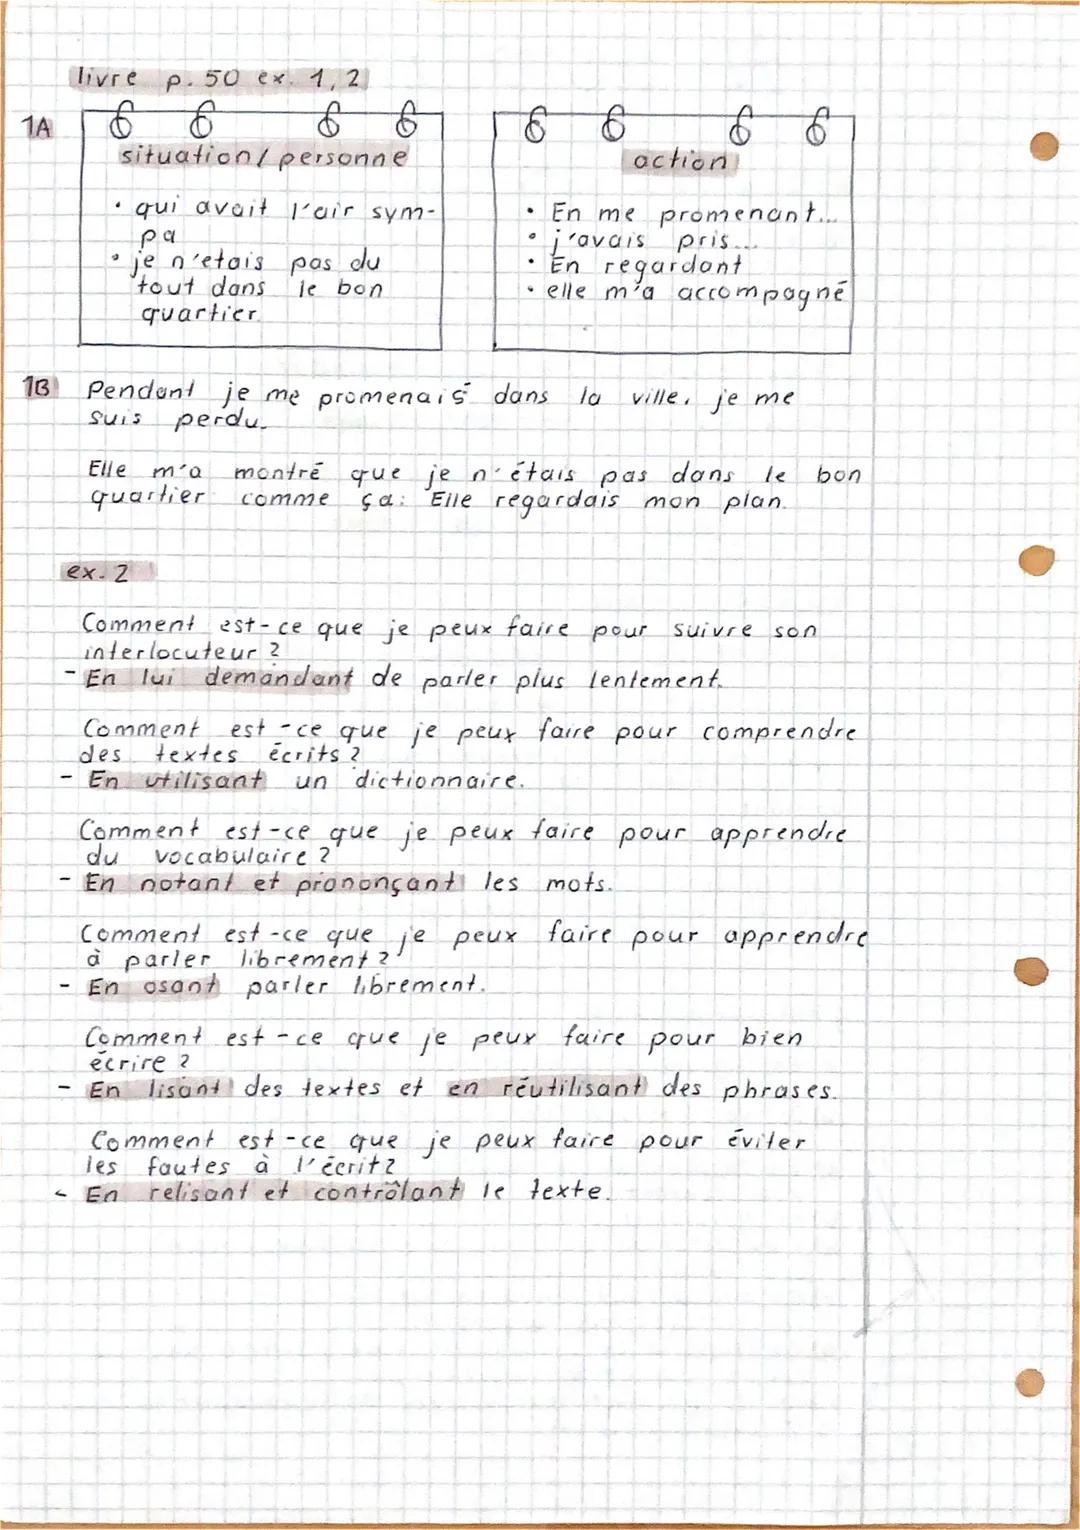 livre p. 50 ex. 1, 2
1A
situation/personne
• qui avait l'air sym-
pa
• je n'etais pas du
tout dans le bon
quartier.
action
• En me promenant...
• j'avais pris...
• En regardant
• elle m'a accompagné
1B Pendant je me promenais dans la ville, je me
suis perdu.
Elle m'a montré que je n'étais pas dans le bon
quartier comme ça: Elle regardais mon plan.
ex. 2
Comment est-ce que je peux faire pour suivre son
interlocuteur?
- En lui demandant de parler plus lentement.
Comment est-ce que je peux faire pour comprendre
des textes écrits?
- En utilisant un dictionnaire.
Comment est-ce que je peux faire pour apprendre
du vocabulaire?
- En notant et prononçant les mots.
Comment est-ce que je peux faire pour apprendre
à parler librement?
- En osant parler librement.
Comment est-ce que je peux faire pour bien
écrire?
- En lisant des textes et en réutilisant des phrases.
Comment est-ce que je peux faire pour éviter
les fautes à l'écrit?
- En relisant et contrôlant le texte.